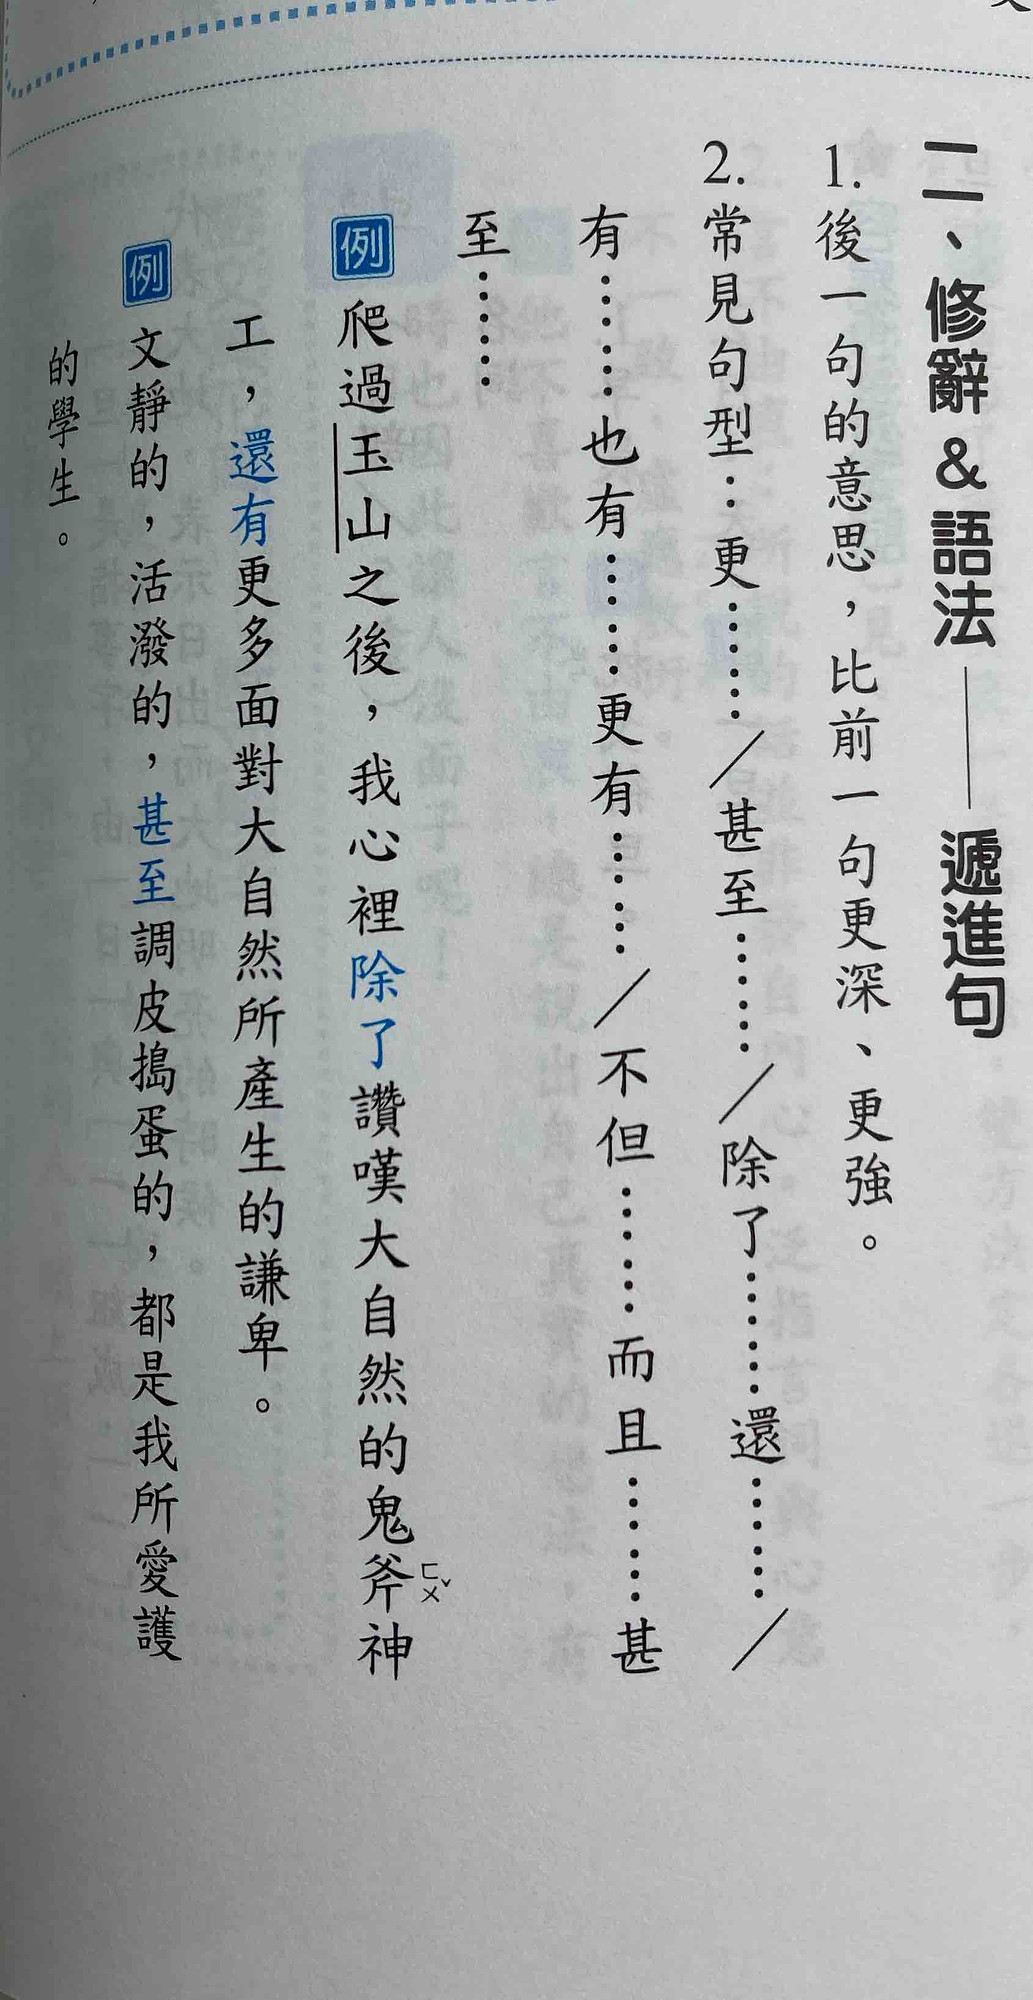 二、修辭&語法——遞進句
1.後一句的意思，比前一句更深、更強。
2.常見句型：更……／甚至……／除了……還……／
有……也有……更有……／不但……而且……甚
至……
例 爬過玉山之後，我心裡除了讚嘆大自然的鬼斧ㄈㄨˇ神
工，還有更多面對大自然所產生的謙卑。
例 文靜的，活潑的，甚至調皮搗蛋的，都是我所愛護
的學生。